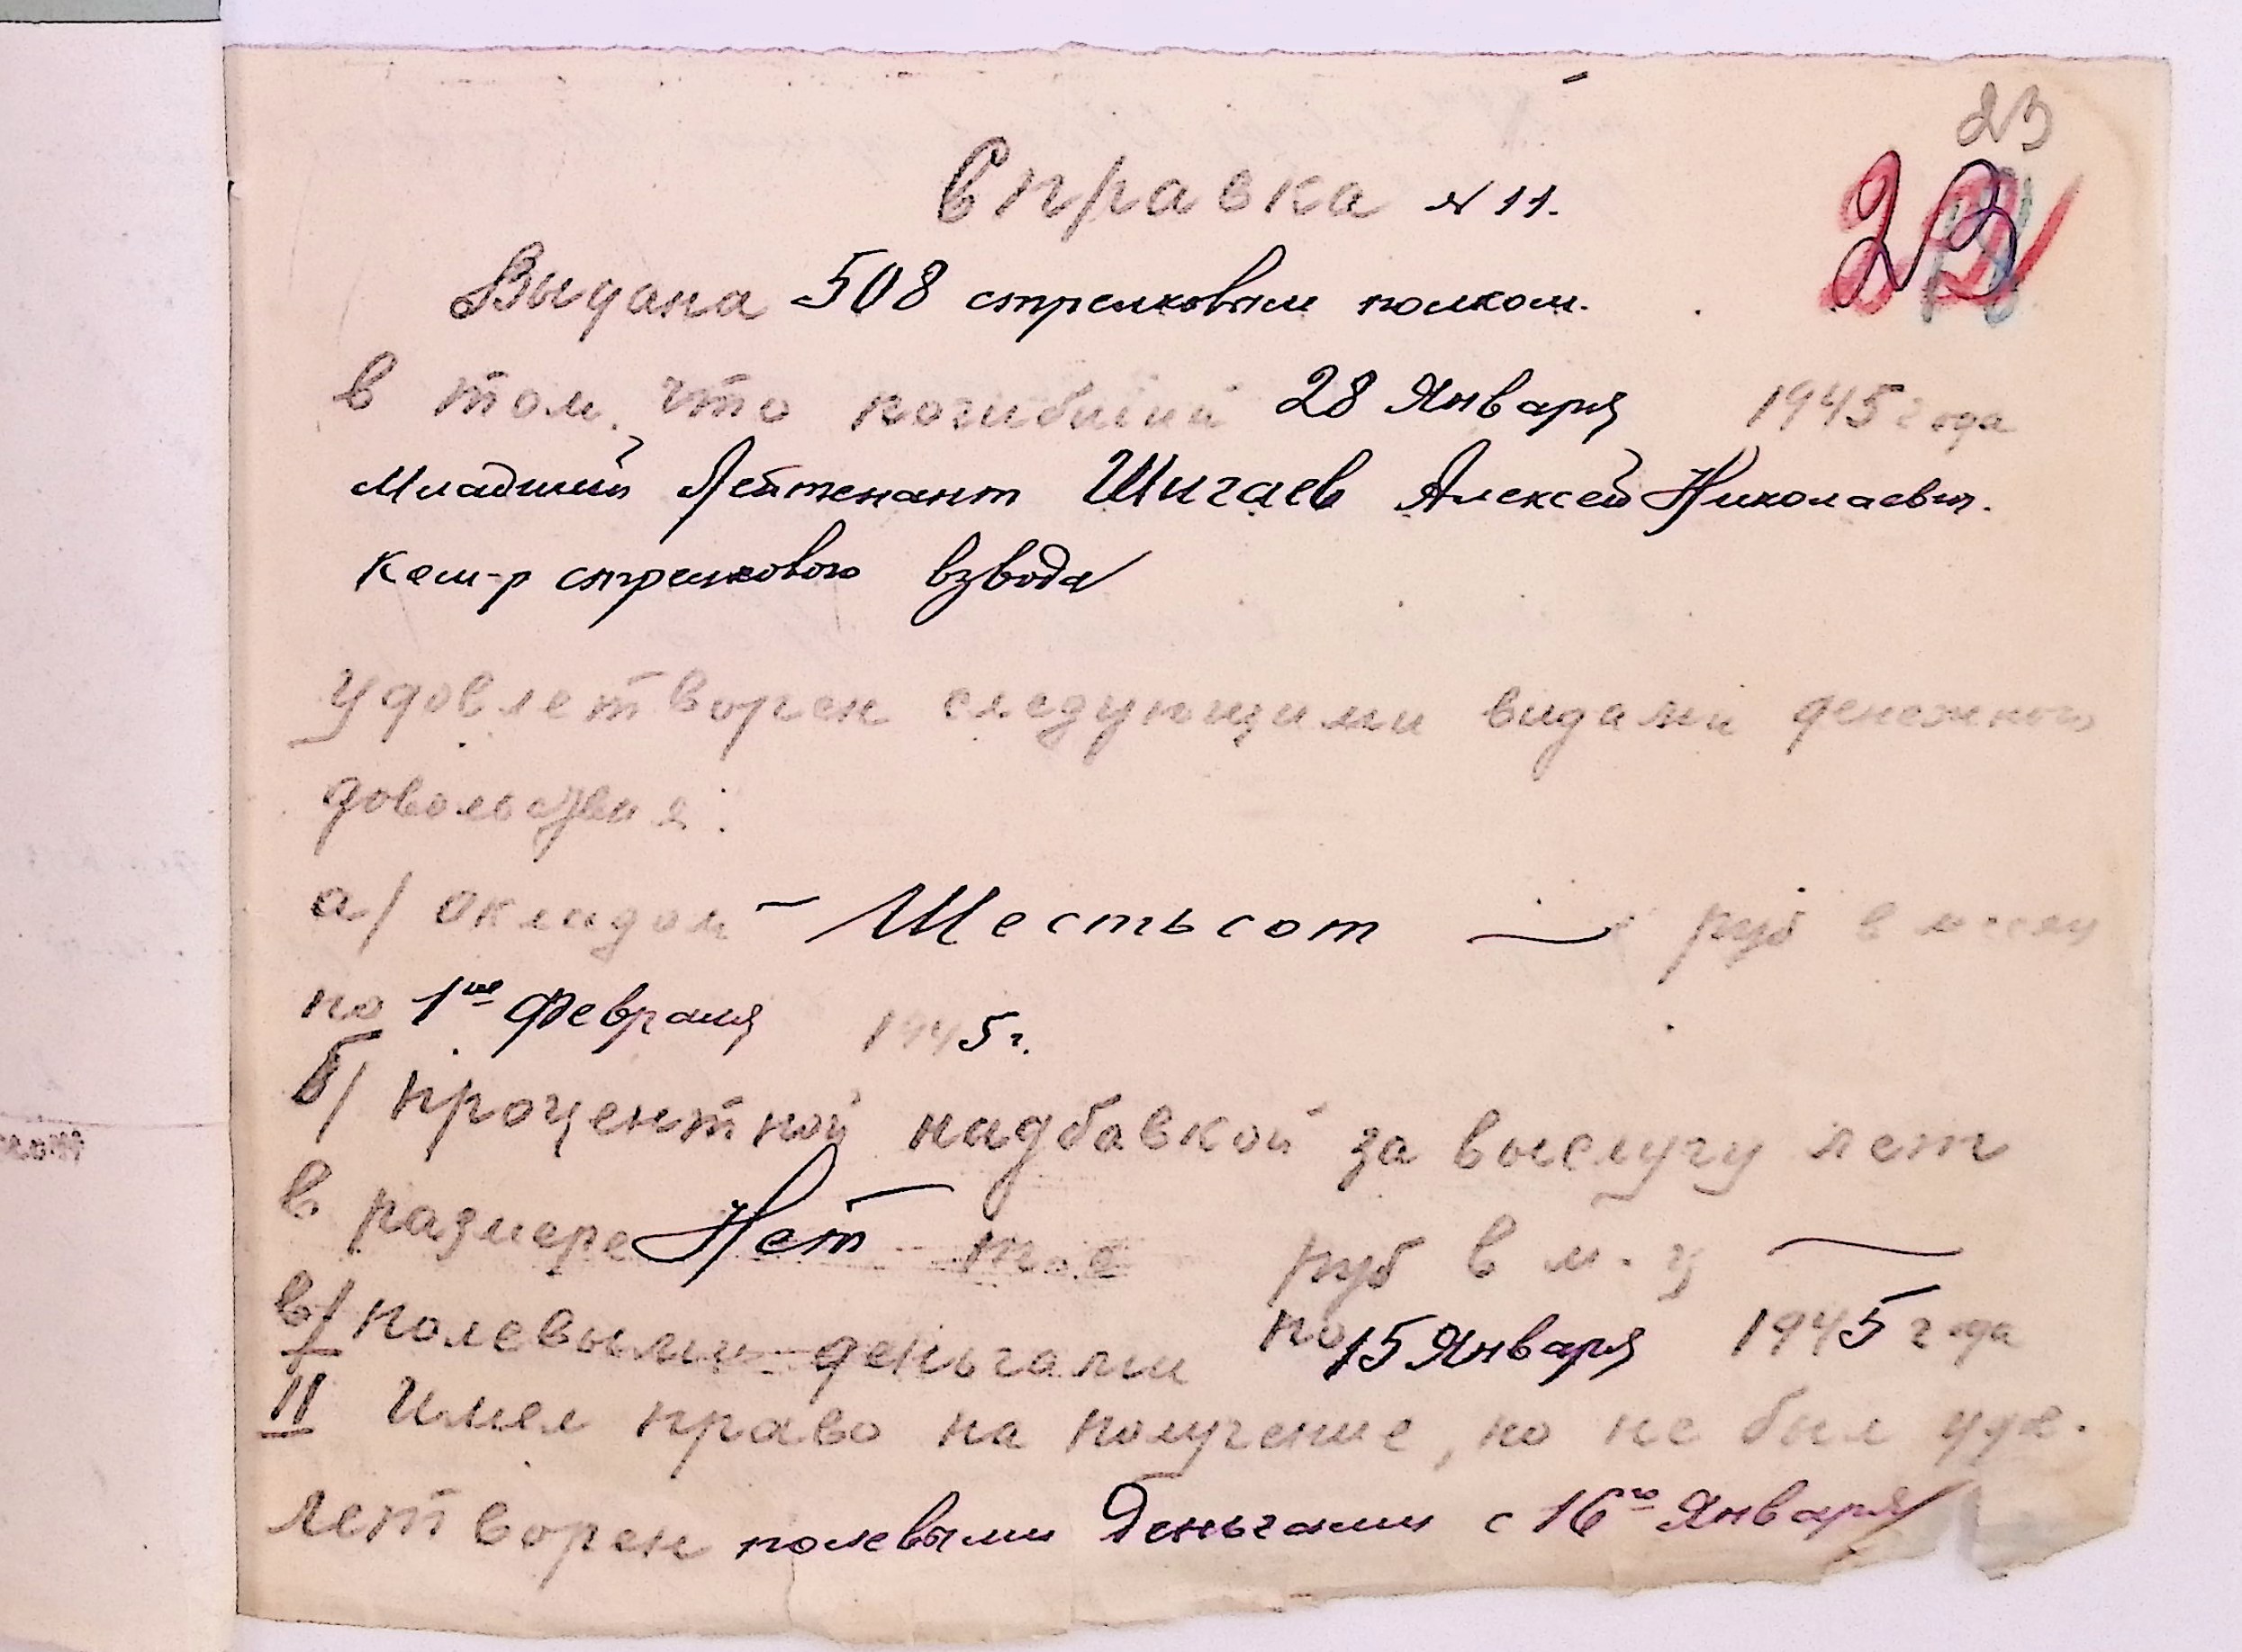 23
23
Справка N 11.
Выдана 508 стрелковым полком.
в том, что погибший 28 Января 1945 года
Младший Лейтенант Шигаев Алексей Николаевич.
Ком-р стрелкового взвода
удовлетворен следующими видами денежного
довольствия:
а/ Окладом - Шестьсот — руб в месяц
по 1ое Февраля 1945 г.
б/ процентной надбавкой за выслугу лет
в размере Нет т.е руб в м-ц —
в/ полевыми деньгами по 15 Января 1945 года
II Имел право на получение, но не был удв.
летворен полевыми Деньгами с 16го Января